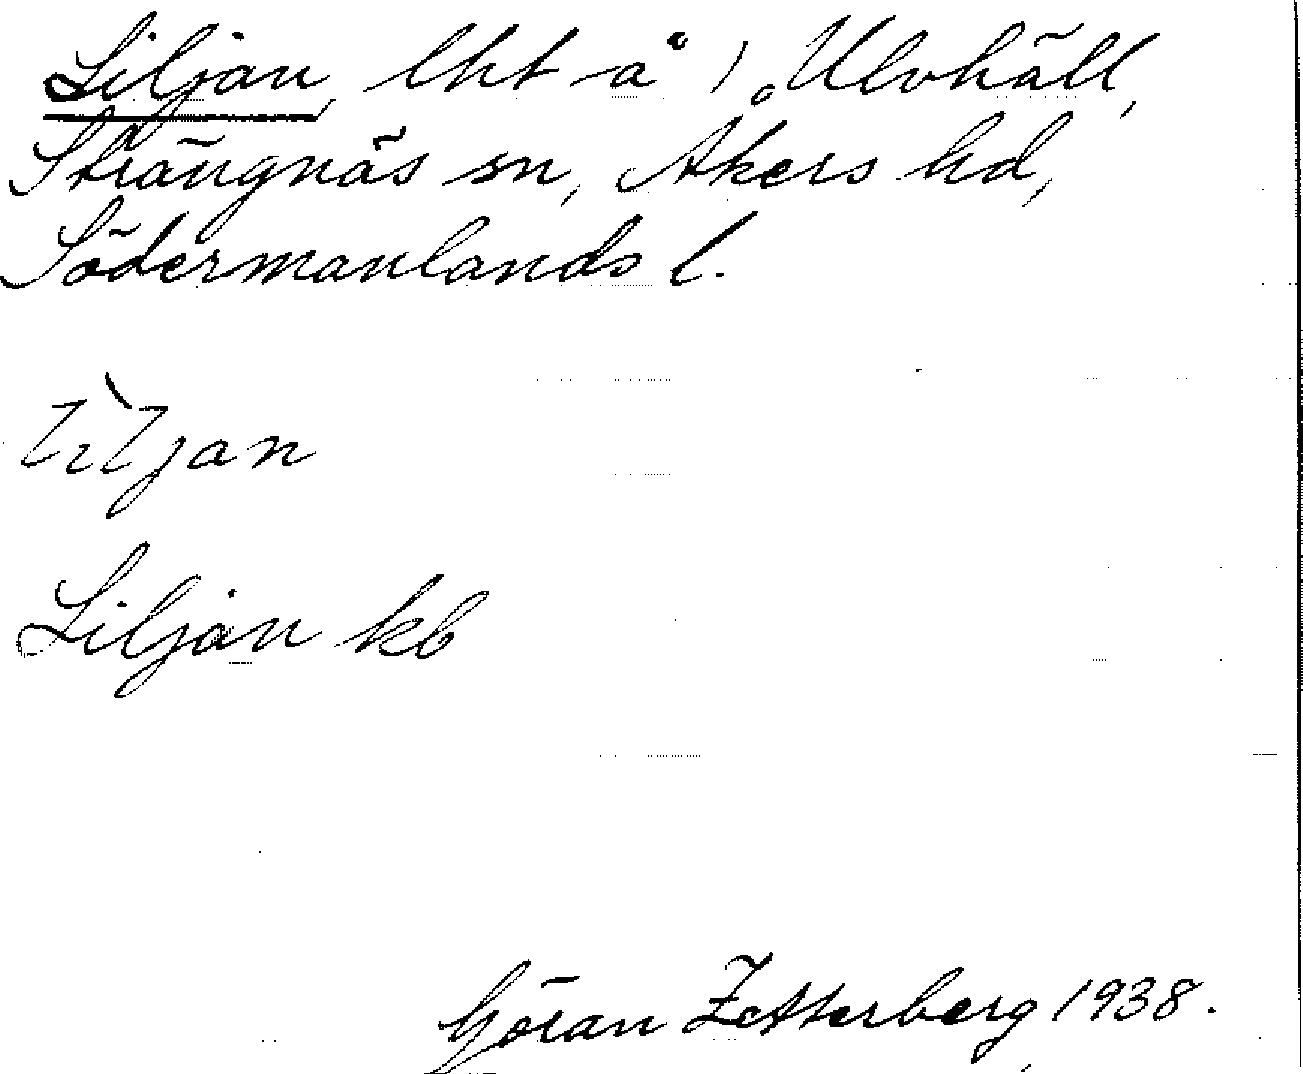 Liljan, lht å 1 Ulvhäll,
Strängnäs sn, Åkers hd,
Södermanlands l.
lìljan
Liljan kb
Göran Zetterberg 1938.